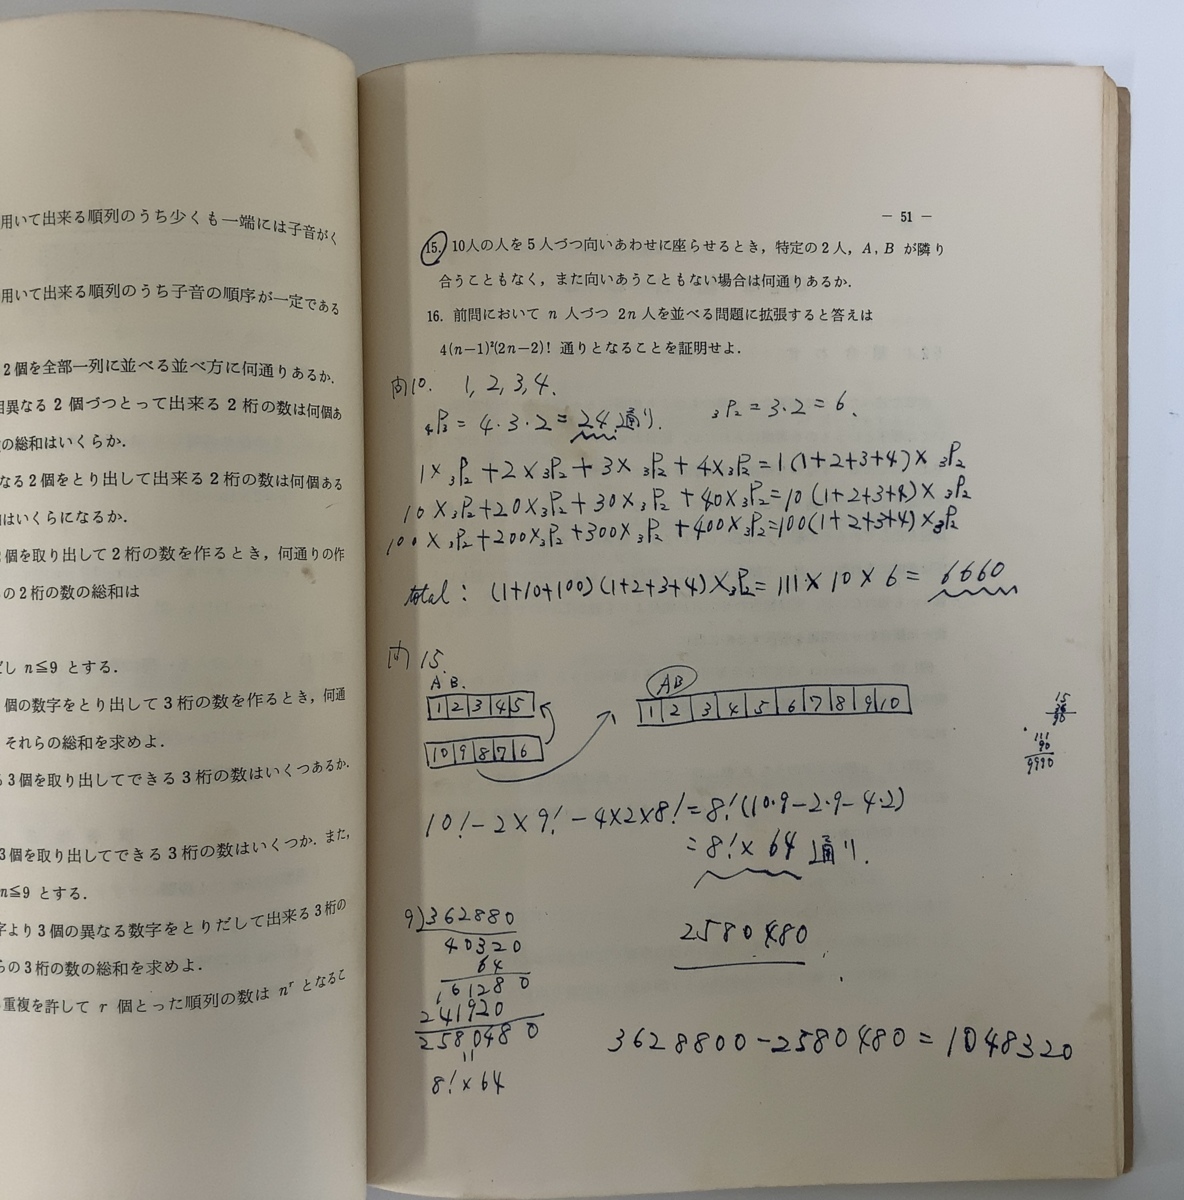 用いて出来る順列のうち少くも一端には子音がく
用いて出来る順列のうち子音の順序が一定である
2個を全部一列に並べる並べ方に何通りあるか.
相異なる2個づつとって出来る2桁の数は何個あ
の総和はいくらか.
なる2個をとり出して出来る2桁の数は何個ある
はいくらになるか.
個を取り出して2桁の数を作るとき, 何通りの作
の2桁の数の総和は
し n≦9 とする.
個の数字をとり出して3桁の数を作るとき, 何通
それらの総和を求めよ.
3個を取り出してできる3桁の数はいくつあるか.
3個を取り出してできる3桁の数はいくつか. また,
n≦9 とする.
字より3個の異なる数字をとりだして出来る3桁の
らの3桁の数の総和を求めよ.
重複を許して r 個とった順列の数は nʳ となるこ
— 51 —
15. 10人の人を5人づつ向いあわせに座らせるとき, 特定の2人, A, B が隣り
合うこともなく, また向いあうこともない場合は何通りあるか.
16. 前問において n 人づつ 2n 人を並べる問題に拡張すると答えは
4(n−1)²(2n−2)! 通りとなることを証明せよ.
問10. 1, 2, 3, 4.
₄P₃ = 4·3·2 = 24通り. ₃P₂ = 3·2 = 6.
1×₃P₂ + 2×₃P₂ + 3×₃P₂ + 4×₃P₂ = 1(1+2+3+4)×₃P₂
10×₃P₂ + 20×₃P₂ + 30×₃P₂ + 40×₃P₂ = 10(1+2+3+4)×₃P₂
100×₃P₂ + 200×₃P₂ + 300×₃P₂ + 400×₃P₂ = 100(1+2+3+4)×₃P₂
total: (1+10+100)(1+2+3+4)×₃P₂ = 111×10×6 = 6660
問15.
A B.
1 2 3 4 5
10 9 8 7 6
AB
1 2 3 4 5 6 7 8 9 10
15
90
111
90
9990
10! − 2×9! − 4×2×8! = 8!(10·9−2·9−4·2)
= 8!×64通り.
9)362880
40320
64
161280
241920
2580480
=
8!×64
2580480
3628800−2580480=1048320